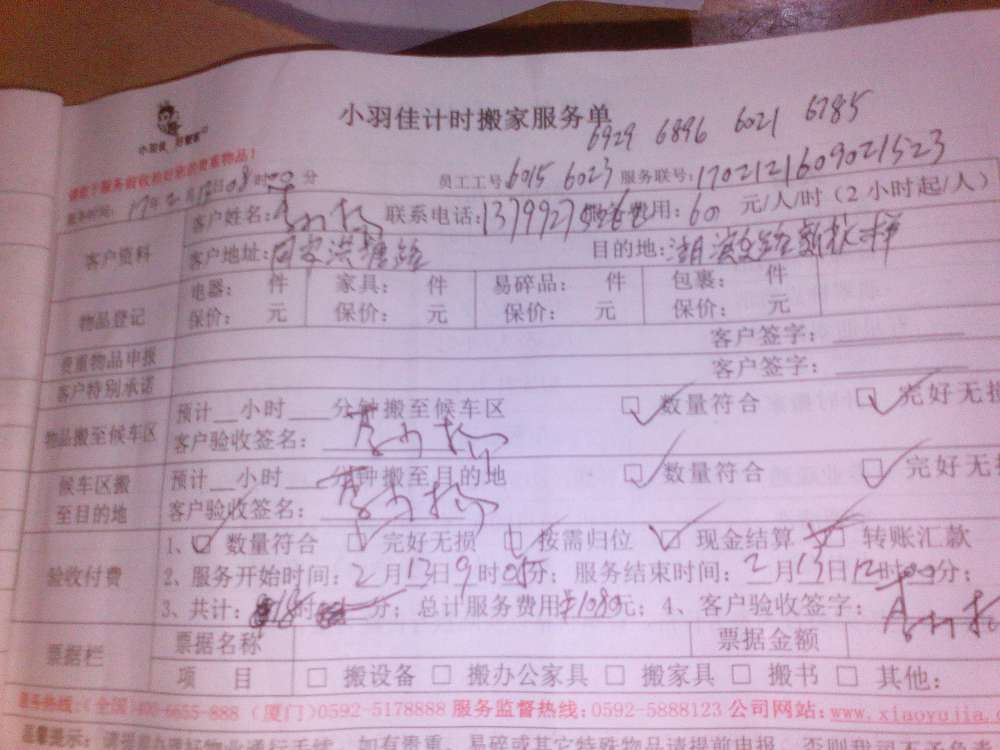 小羽佳计时搬家服务单
6929 6896 6021 6785
小羽佳 好管家
请在服务前收拾好您的贵重物品!
服务时间: 17年2月12日08时 分
员工工号 6015 6023 服务联号: 1702121609021523
客户资料
客户姓名: 联系电话: 1379927 费用: 60 元/人/时 (2小时起/人)
客户地址: 同安洪塘 目的地: 湖滨
物品登记
电器: 件 家具: 件 易碎品: 件 包裹: 件
保价: 元 保价: 元 保价: 元 保价: 元
贵重物品申报 客户签字:
客户特别承诺 客户签字:
物品搬至候车区
预计__小时__分钟搬至候车区 □ 数量符合 □ 完好无损
客户验收签名:
候车区搬至目的地
预计__小时__分钟搬至目的地 □ 数量符合 □ 完好无损
客户验收签名:
验收付费
1、□ 数量符合 □ 完好无损 □ 按需归位 □ 现金结算 □ 转账汇款
2、服务开始时间: 2月13日9时05分; 服务结束时间: 2月13日12时00分;
3、共计: 18时 分; 总计服务费用¥1080元; 4、客户验收签字:
票据栏
票据名称 票据金额
项 目 □ 搬设备 □ 搬办公家具 □ 搬家具 □ 搬书 □ 其他:
服务热线: (全国)400-6655-888 (厦门)0592-5178888 服务监督热线: 0592-5888123 公司网站: www.xiaoyujia.
温馨提示: 请提前办理好物业通行手续, 如有贵重、易碎或其它特殊物品请提前申报, 否则我司不负